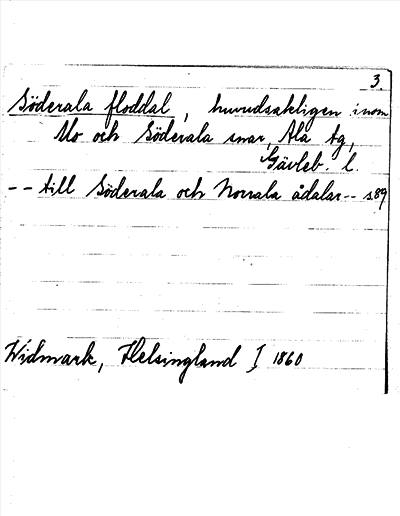 3.
Söderala floddal, huvudsakligen inom
Mo och Söderala snar, Ala tg,
Gävleb. l.
-- till Söderala och Norrala ådalar -- s.89
Widmark, Helsingland I 1860